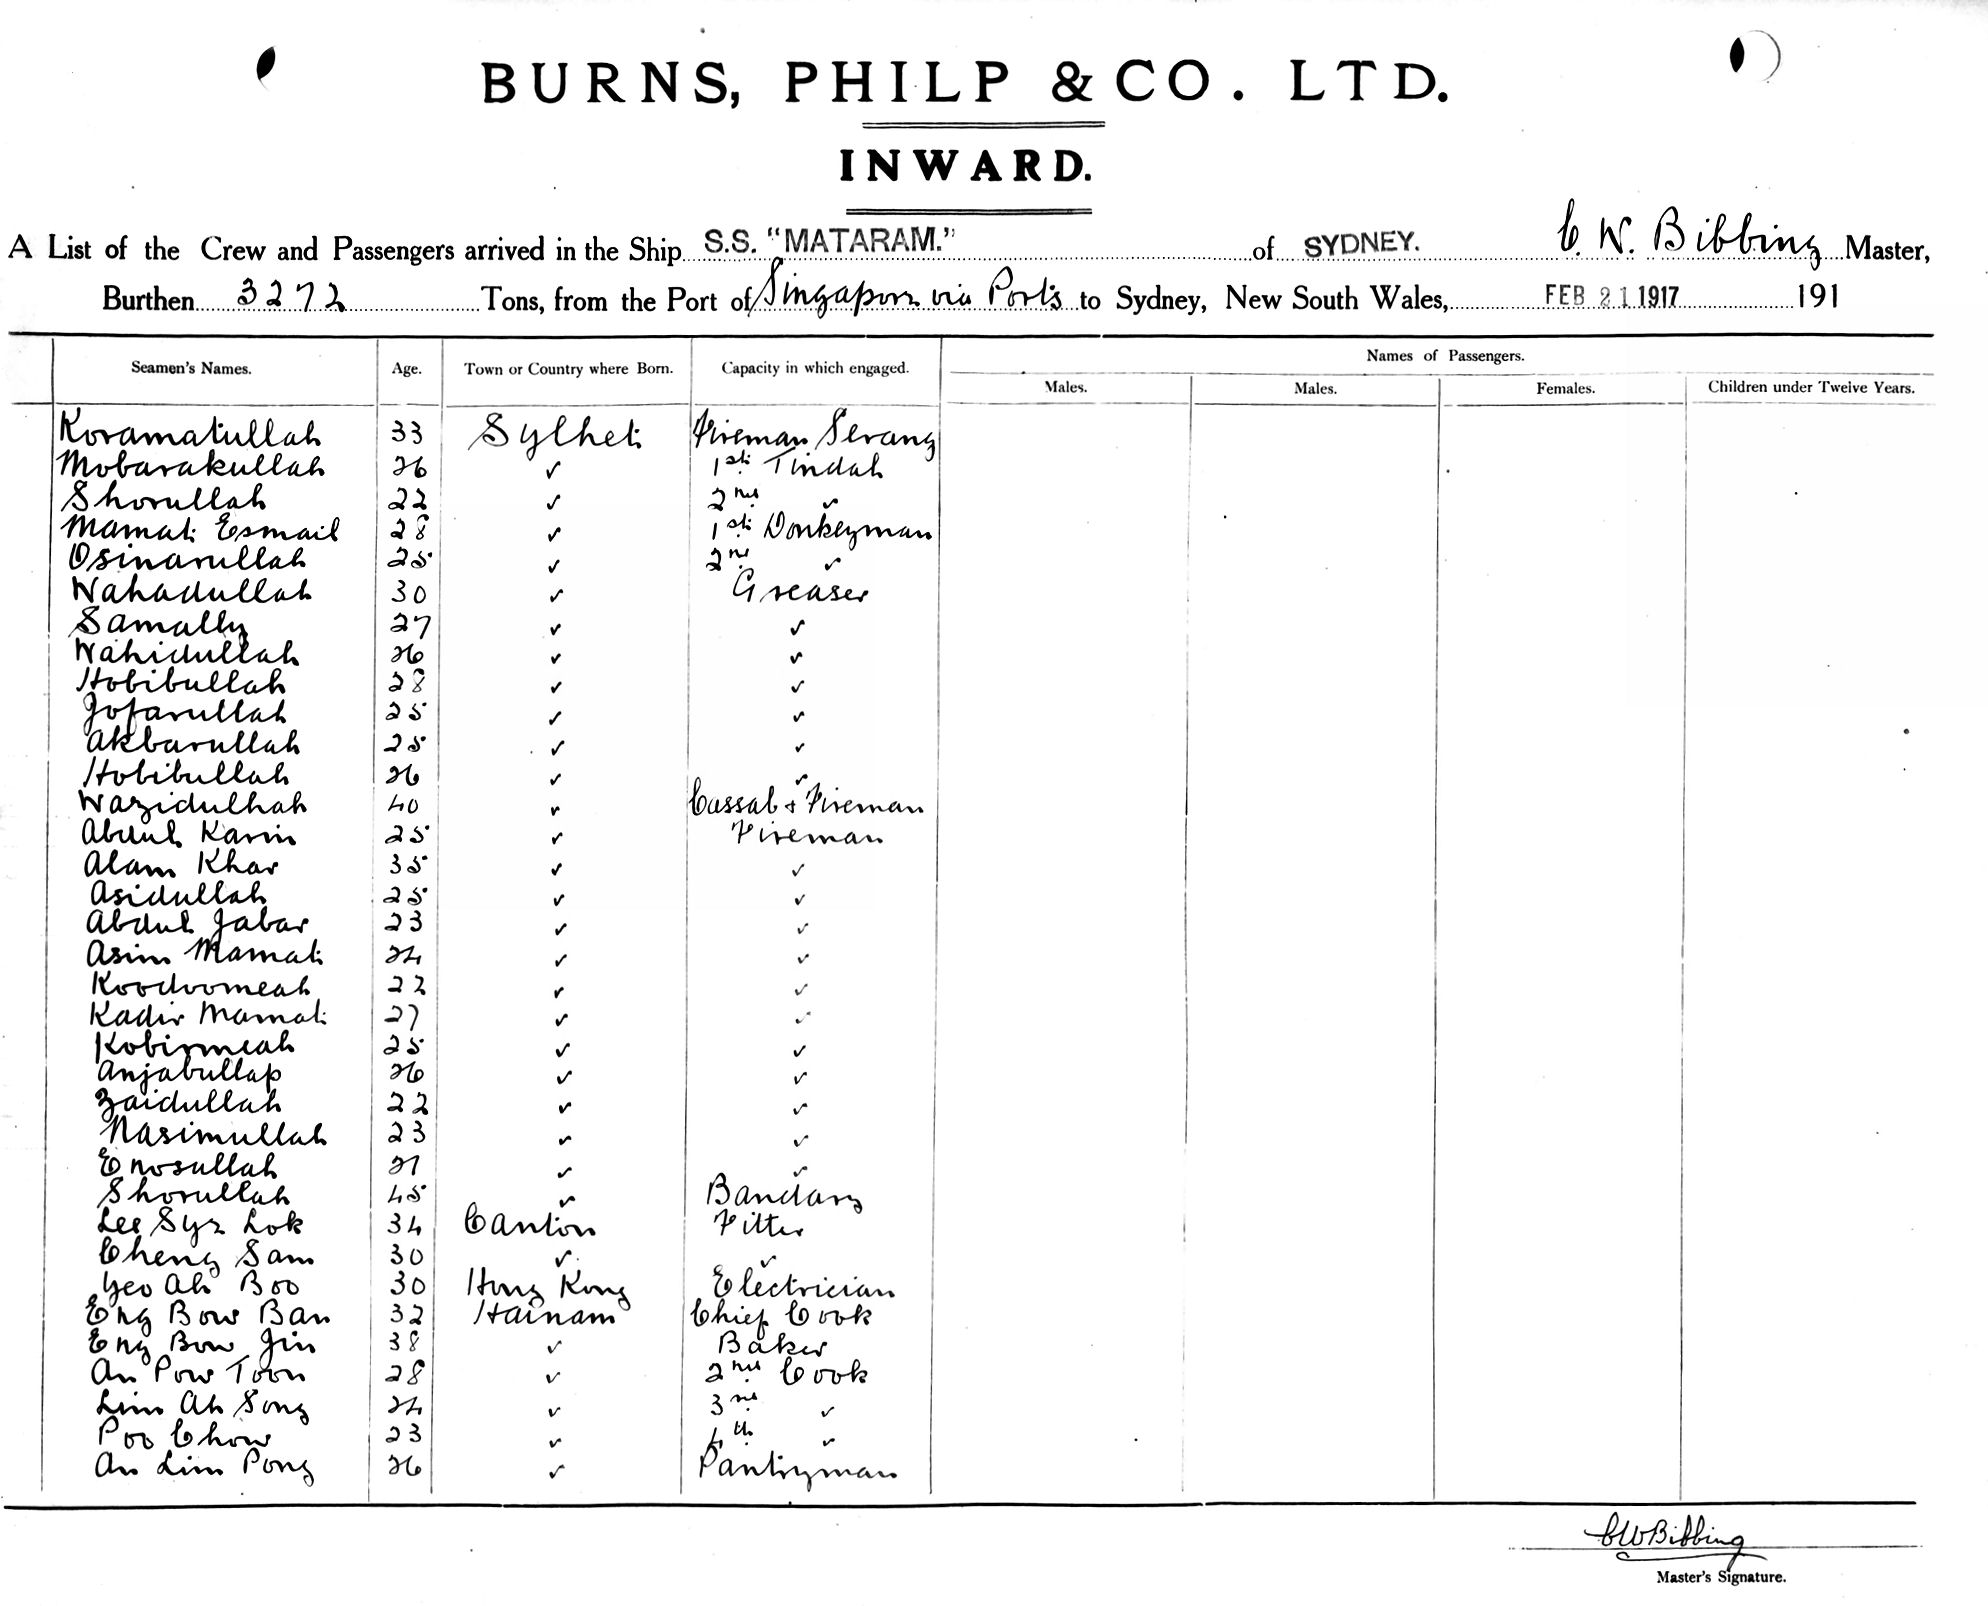 BURNS, PHILP & CO. LTD.
INWARD.
A List of the Crew and Passengers arrived in the Ship S.S. "MATARAM." of SYDNEY. C. W. Bibbing Master,
Burthen 3272 Tons, from the Port of Singapore via Ports to Sydney, New South Wales, FEB 21 1917 191
Seamen's Names. Age. Town or Country where Born. Capacity in which engaged. Names of Passengers.
Males. Males. Females. Children under Twelve Years.
Koramatullah 33 Sylhet Fireman Serang
Mobarakullah 26 ✓ 1st Tindal
Shorullah 22 ✓ 2nd ✓
Mamat Esmail 28 ✓ 1st Donkeyman
Osinarullah 25 ✓ 2nd ✓
Wahadullah 30 ✓ Greaser
Samally 27 ✓ ✓
Wahidullah 26 ✓ ✓
Hobibullah 28 ✓ ✓
Jofarullah 25 ✓ ✓
Akbarullah 25 ✓ ✓
Hobibullah 26 ✓ ✓
Wazidulhah 40 ✓ Cassab & Fireman
Abdul Karim 25 ✓ Fireman
Alam Khar 35 ✓ ✓
Asidullah 25 ✓ ✓
Abdul Jabar 23 ✓ ✓
Asim Mamat 24 ✓ ✓
Koodoomeah 22 ✓ ✓
Kadir Mamat 27 ✓ ✓
Kobirmeah 25 ✓ ✓
Anjabullap 26 ✓ ✓
Zaidullah 22 ✓ ✓
Nasimullah 23 ✓ ✓
Enosullah 21 ✓ ✓
Shorullah 45 ✓ Bandary
Lee Sye Lok 34 Canton Fitter
Cheng Sam 30 ✓ ✓
Yeo Ah Boo 30 Hong Kong Electrician
Eng Bow Ban 32 Hainam Chief Cook
Eng Bow Jin 38 ✓ Baker
An Pow Toon 28 ✓ 2nd Cook
Lim Ah Song 24 ✓ 3rd ✓
Poo Chow 23 ✓ 4th ✓
An Lim Pong 26 ✓ Pantryman
CWBibbing
Master's Signature.